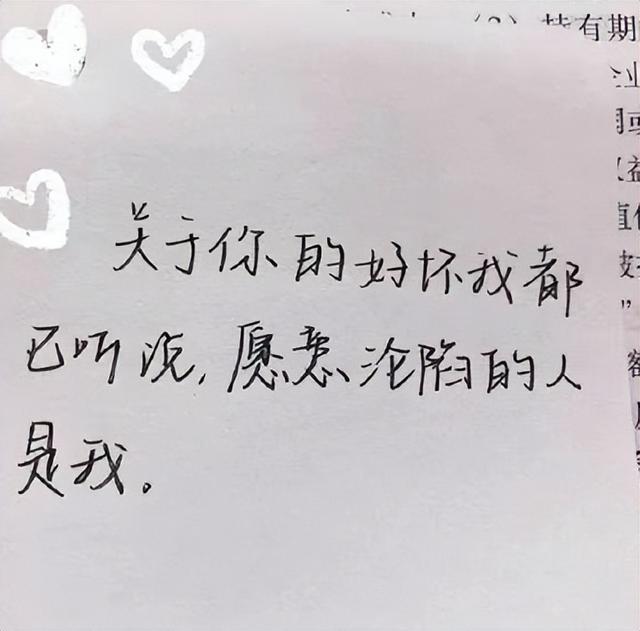 (2) 持有期
关于你的好坏我都
已听说,愿意沦陷的人
是我。